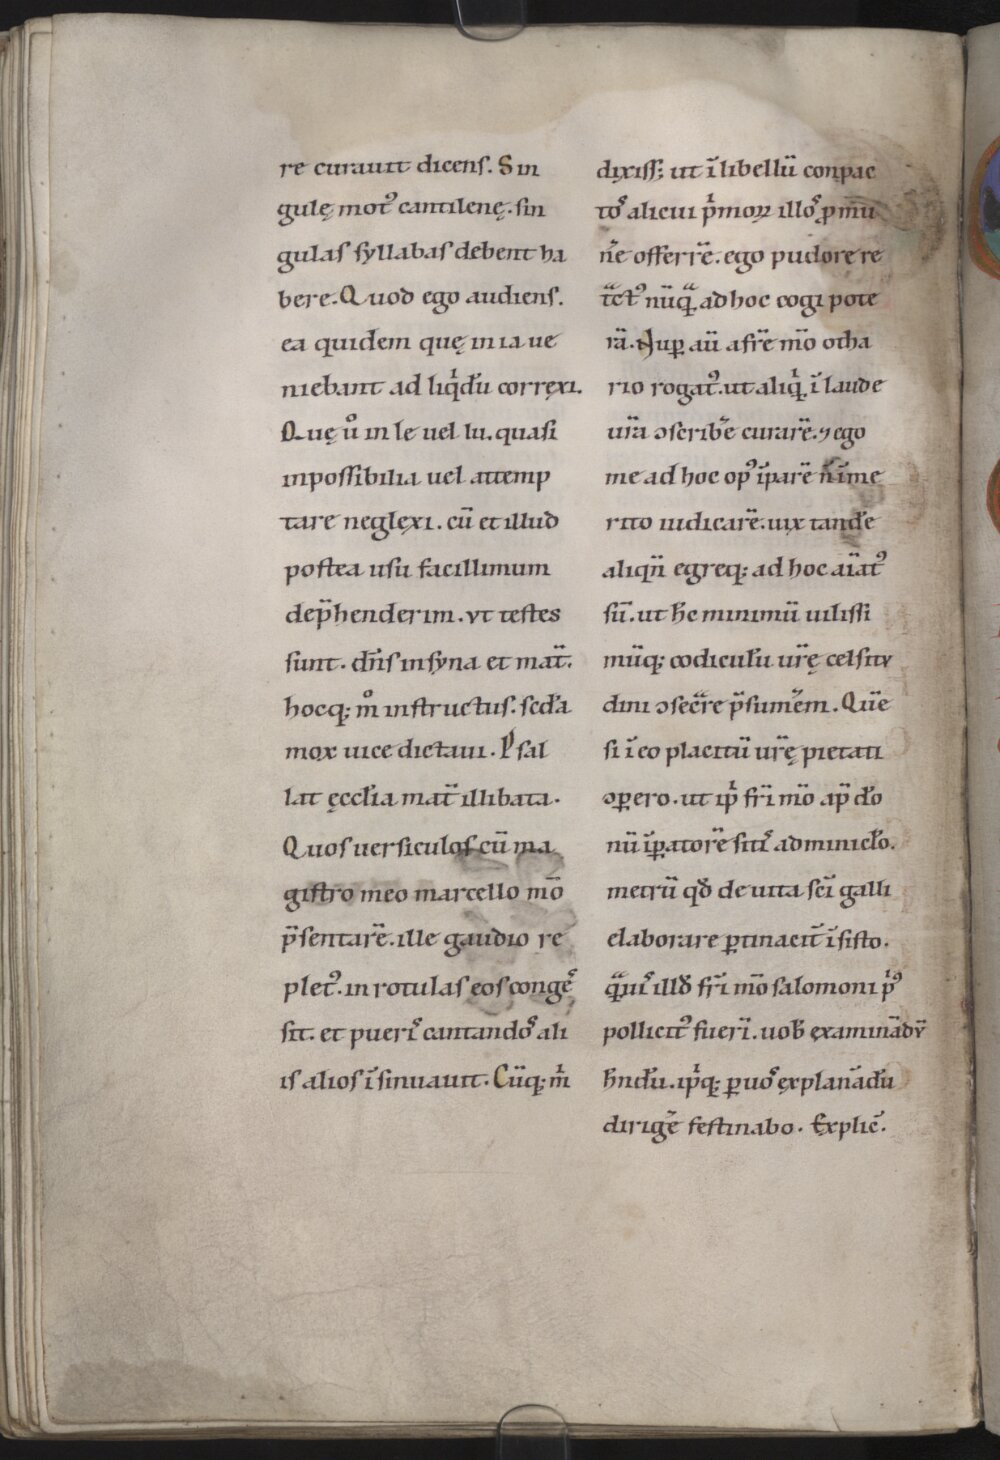 re curauit dicens. Sin
gulę mot᷒ cantilenę. sin
gulas syllabas debent ha
bere. Quod ego audiens.
ea quidem quę in ia ue
niebant ad liq̇du̅ correxi.
Quę ů in le uel lu. quasi
inpossibilia uel attemp
tare neglexi. cu̅ et illud
postea usu facillimum
dep̅henderim. vt testes
sunt. dn̅s in syna et mat̅.
hocq; m̊ instructus. scd̅a
mox uice dictaui. Psal
lat ęccl̅ia mat̅ illibata.
Quos uersiculos cu̅ ma
gistro meo marcello mo̅
p̅sentare̅. ille gaudio re
plet᷒. in rotulas eos conge̅s
sit. et pueris cantandos ali
is alios i̅sinuauit. Cu̅q; m̅
dixiss; ut i̅ libellu̅ conpac
tos alicui p̅morꝝ illos ꝓ mu
ne̅ offerre̅. ego pudore re
t̅ct᷒ nu̅q̅ ad hoc cogi pote
ra̅. Nuꝑ au̅ a fr̅e m̅o otha
rio rogat᷒. ut aliq̇ i̅ laude
ur̅a ↄscribe̅ curare̅. ⁊ ego
me ad hoc op᷒ i̅pare̅ n̅ i̅me
rito iudicare̅. uix tande̅
aliqn̅ egreq; ad hoc ai̅at᷒
su̅. ut h̅c minimu̅ uilissi
mu̅q; codiculu̅ ur̅ę celsitu
dini ↄsec̅re p̅sume̅em. Que̅
si i̅ eo placitu̅ ur̅ę pietati
ↄꝑero. ut ip̅i fr̅i m̅o ap̅ do̅
nu̅ i̅ꝑatore̅ sitis adminiclo̅.
metru̅ qđ de uita sc̅i galli
elaborare ꝑtinacit̅ i̅sisto.
q̅uis illđ fr̅i m̅o salomoni p᷒
pollicit᷒ fueri̅. uob̅ examina̅du̅
h̅ndu̅. ip̅iq; ꝑ uos explana̅du̅
dirige̅ festinabo. Explic̅.